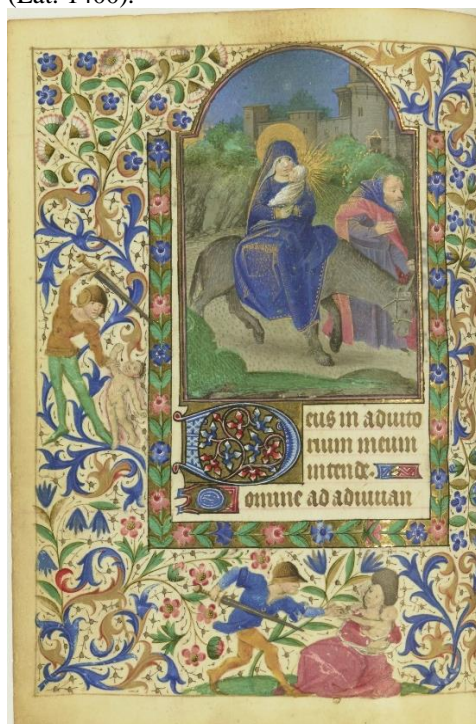 (Lat.
Deus in adiuto
rium meum
intende.
Domine ad adiuuan